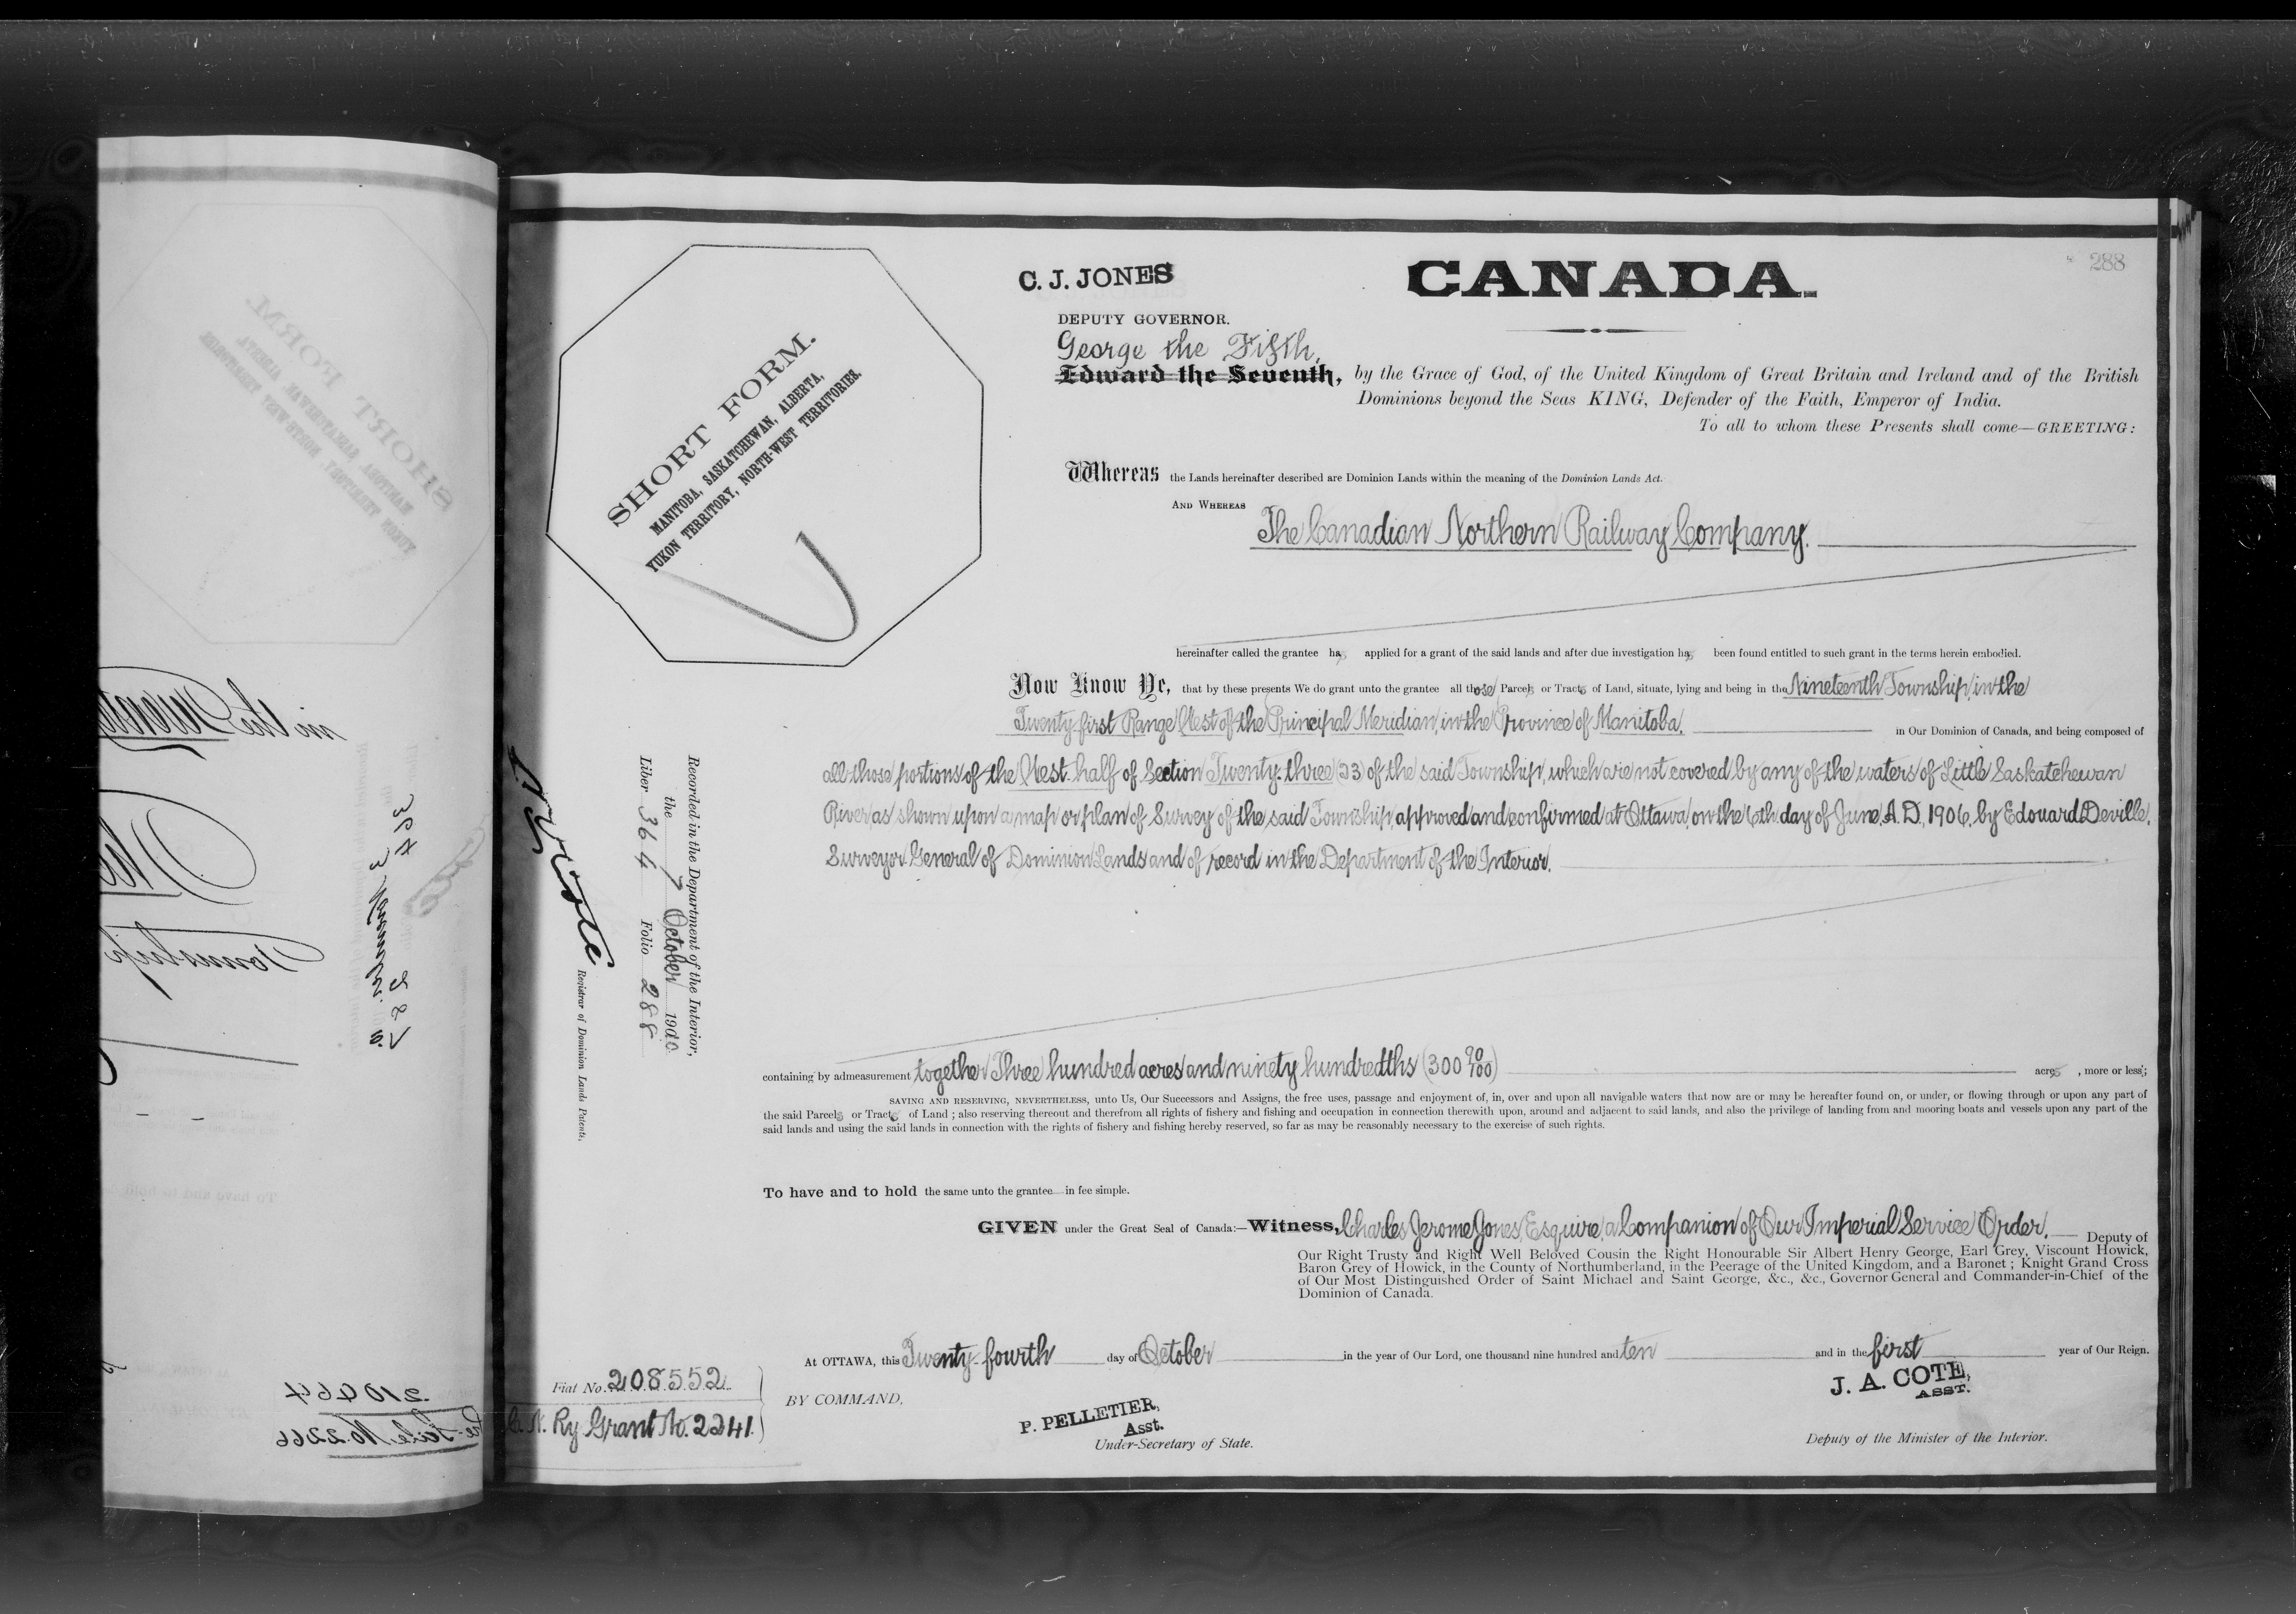 288
C. J. JONES
CANADA.
DEPUTY GOVERNOR.
George the Fifth,
Edward the Seventh, by the Grace of God, of the United Kingdom of Great Britain and Ireland and of the British
Dominions beyond the Seas KING, Defender of the Faith, Emperor of India.
To all to whom these Presents shall come—GREETING:
SHORT FORM.
MANITOBA, SASKATCHEWAN, ALBERTA,
YUKON TERRITORY, NORTH-WEST TERRITORIES.
Whereas the Lands hereinafter described are Dominion Lands within the meaning of the Dominion Lands Act.
AND WHEREAS
The Canadian Northern Railway Company.
hereinafter called the grantee has applied for a grant of the said lands and after due investigation has been found entitled to such grant in the terms herein embodied.
Now Know Ye, that by these presents We do grant unto the grantee all those Parcels or Tracts of Land, situate, lying and being in the Nineteenth Township, in the
Twenty-first Range West of the Principal Meridian, in the Province of Manitoba, in Our Dominion of Canada, and being composed of
all those portions of the West half of Section Twenty-three (23) of the said Township, which are not covered by any of the waters of Little Saskatchewan
River, as shown upon a map or plan of Survey of the said Township, approved and confirmed at Ottawa, on the 6th day of June, A.D. 1906, by Edouard Deville,
Surveyor General of Dominion Lands and of record in the Department of the Interior.
Recorded in the Department of the Interior,
the 7 October 1910
Liber 364 Folio 288
Registrar of Dominion Lands Patents.
containing by admeasurement together Three hundred acres and ninety hundredths (300 90/100) acres, more or less;
SAVING AND RESERVING, NEVERTHELESS, unto Us, Our Successors and Assigns, the free uses, passage and enjoyment of, in, over and upon all navigable waters that now are or may be hereafter found on, or under, or flowing through or upon any part of
the said Parcels or Tracts of Land; also reserving thereout and therefrom all rights of fishery and fishing and occupation in connection therewith upon, around and adjacent to said lands, and also the privilege of landing from and mooring boats and vessels upon any part of the
said lands and using the said lands in connection with the rights of fishery and fishing hereby reserved, so far as may be reasonably necessary to the exercise of such rights.
To have and to hold the same unto the grantee in fee simple.
GIVEN under the Great Seal of Canada:—Witness, Charles Jerome Jones, Esquire, a Companion of Our Imperial Service Order, Deputy of
Our Right Trusty and Right Well Beloved Cousin the Right Honourable Sir Albert Henry George, Earl Grey, Viscount Howick,
Baron Grey of Howick, in the County of Northumberland, in the Peerage of the United Kingdom, and a Baronet; Knight Grand Cross
of Our Most Distinguished Order of Saint Michael and Saint George, &c., &c., Governor General and Commander-in-Chief of the
Dominion of Canada.
At OTTAWA, this Twenty-fourth day of October in the year of Our Lord, one thousand nine hundred and ten and in the first year of Our Reign.
Fiat No. 208552
C. N. Ry Grant No. 2241.
BY COMMAND,
P. PELLETIER,
Asst.
Under-Secretary of State.
J. A. COTE,
ASST.
Deputy of the Minister of the Interior.